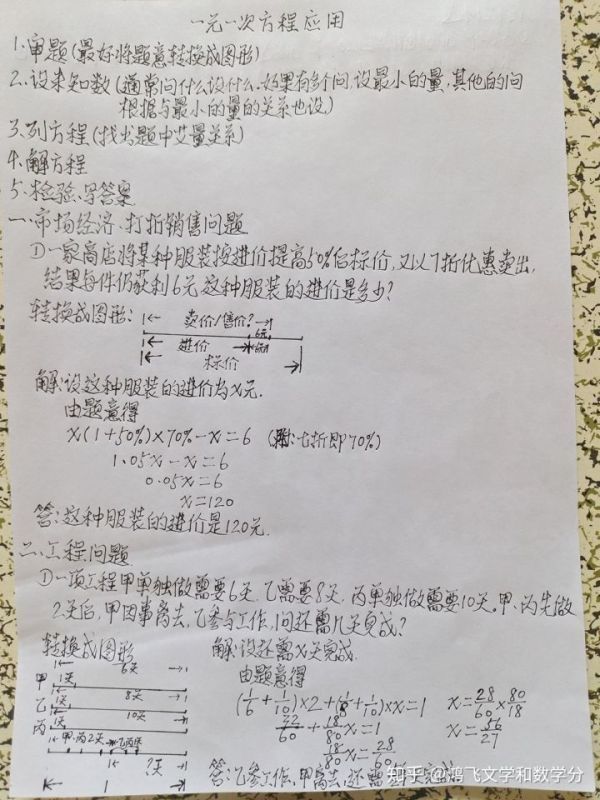 一元一次方程应用
1.审题(最好将题意转换成图形)
2.设未知数(通常问什么设什么.如果有多个问,设最小的量,其他的问
根据与最小的量的关系也设.)
3.列方程(找出题中艾量关系)
4.解方程
5.检验、写答案
一.市场经济、打折销售问题
①一家商店将某种服装按进价提高50%后标价,又以7折优惠卖出,
结果每件仍获利6元,这种服装的进价是多少?
转换成图形:
卖价/售价?
6元
进价
标价
解:设这种服装的进价为x元.
由题意得
x(1+50%)×70%-x=6 (附:七折即70%)
1.05x-x=6
0.05x=6
x=120
答:这种服装的进价是120元.
二.工程问题
①一项工程甲单独做需要6天.乙需要8天,丙单独做需要10天,甲、丙先做
2天后,甲因事离去,乙参与工作,问还需几天完成?
转换成图形 解:设还需x天完成.
6天 由题意得
甲 1天
8天
乙 1天
10天
丙 1天
甲、丙2天 乙丙x天
?天
1
(1/6+1/10)×2+(1/8+1/10)×x=1 x=28/60×80/18
32/60+18/80x=1 x=56/27
18/80x=28/60
答:乙参工作,甲离去,还需 完成
知乎 @鸿飞文学和数学分